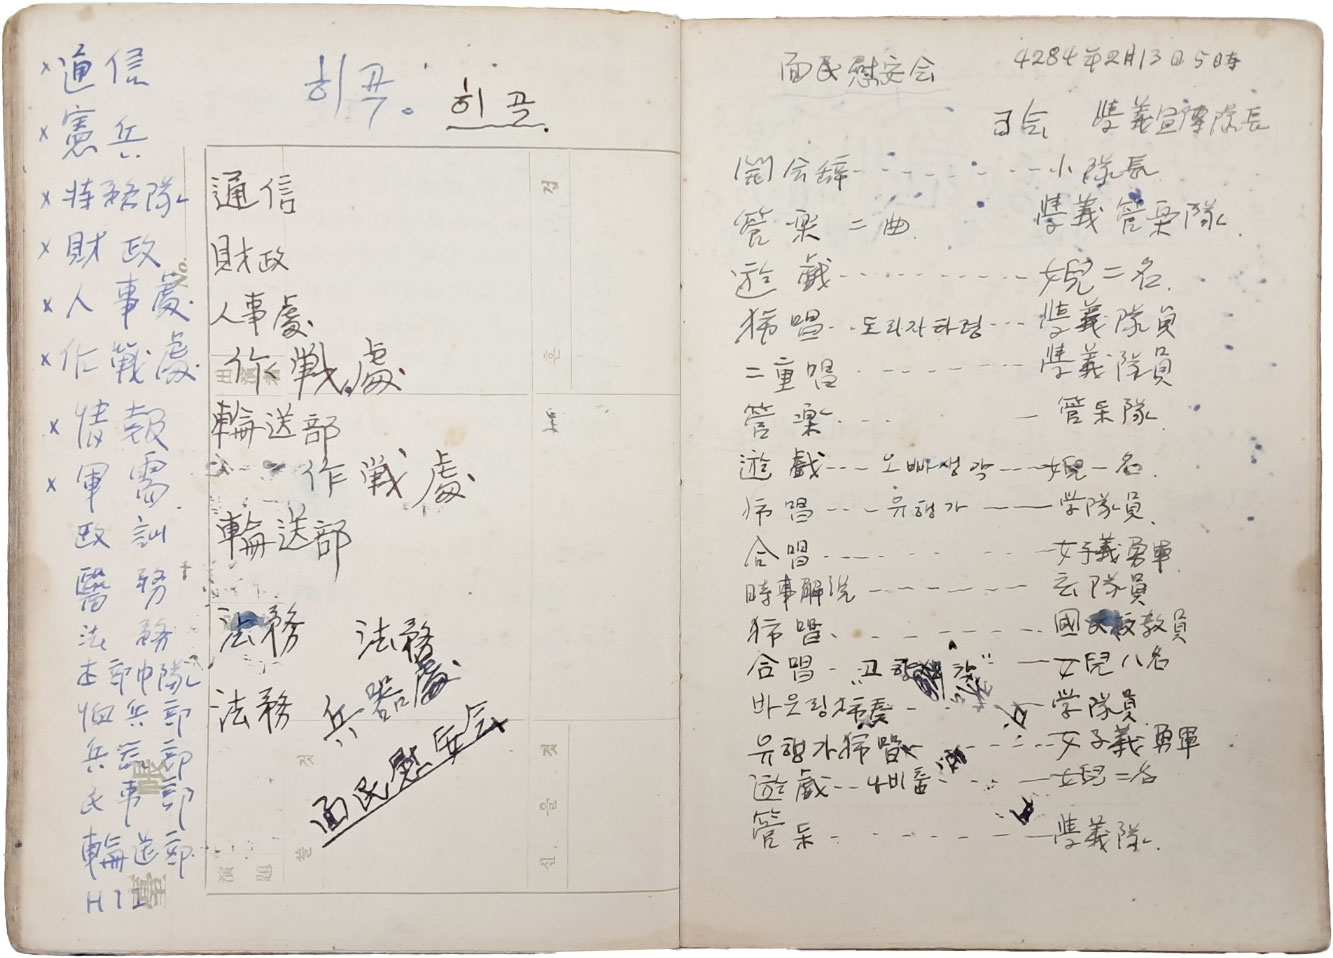 ×通信
×憲兵
×特務隊
×財政
×人事處
×作戰處
×情報
×軍需
政訓
醫務
法務
本部中隊
兵器部
民事部
輪送部
HID
히곡。 히골.
通信
財政
人事處
作戰處
輪送部
作戰處
輪送部
法務 法務
法務 兵器處
面民慰安会
No.
面民慰安会 4284年2月13日5時
司会 學義宣傳隊長
開会辞 - - - - - - 小隊長
管楽 二曲 學義管楽隊.
遊戱 - - - - - - 女兒二名.
独唱 - - 도라지타령 - - - 學義隊員
二重唱 - - - - - - 學義隊員
管楽 - - - 管楽隊.
遊戱 - - - 오빠생각 - - - 女兒一名.
独唱 - - - 유행가 - - - 学隊員.
合唱 - - - - - - 女子義勇軍.
時事解説 - - - - - - 隊員
独唱 - - - - - - 國民校教員
合唱 - 고향 女兒八名
바욜링独奏 - - - 学隊員
유행가独唱 - - - 女子義勇軍
遊戱 - - 나비춤 - - - 女兒二名
管楽 - - - - - - 學義隊.